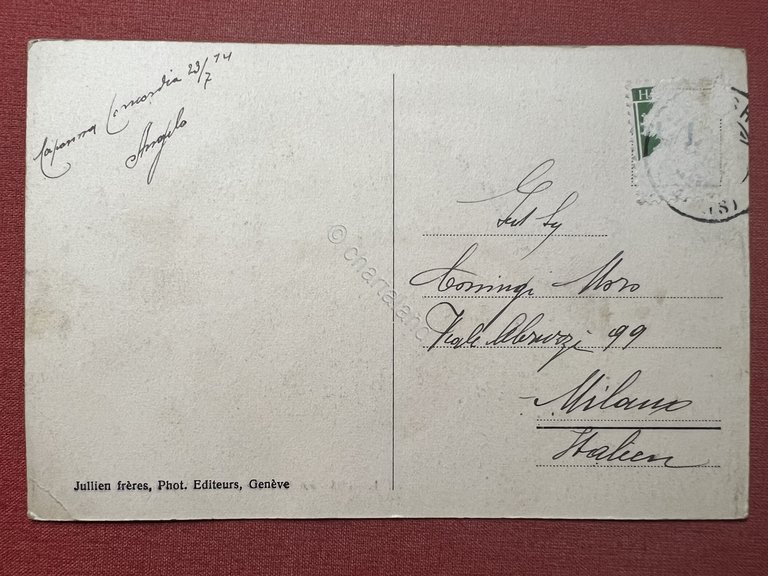 Capanna Concordia 23/7 14
Angelo
H
Moro
Viale Abruzzi 99
Milano
Italien
Jullien frères, Phot. Editeurs, Genève
© chartaland